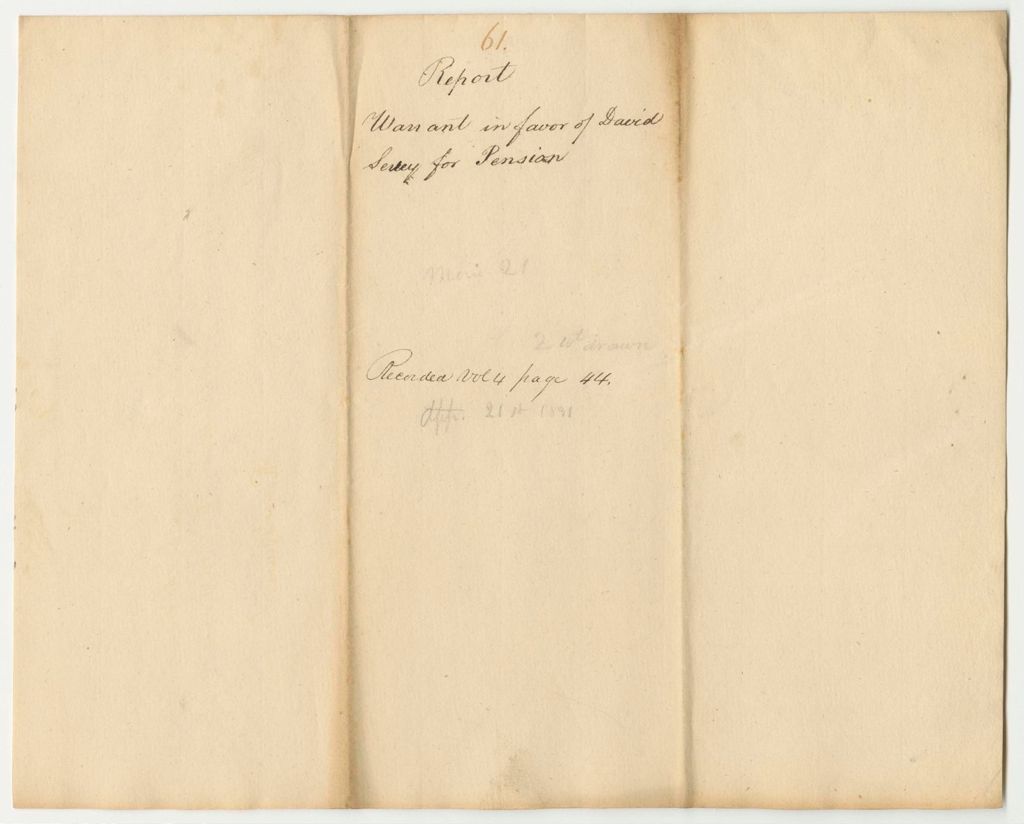 61.
Report
Warrant in favor of David
for Pension
21
Wt drawn
Recorded Vol 4 page 44.
21st 1831